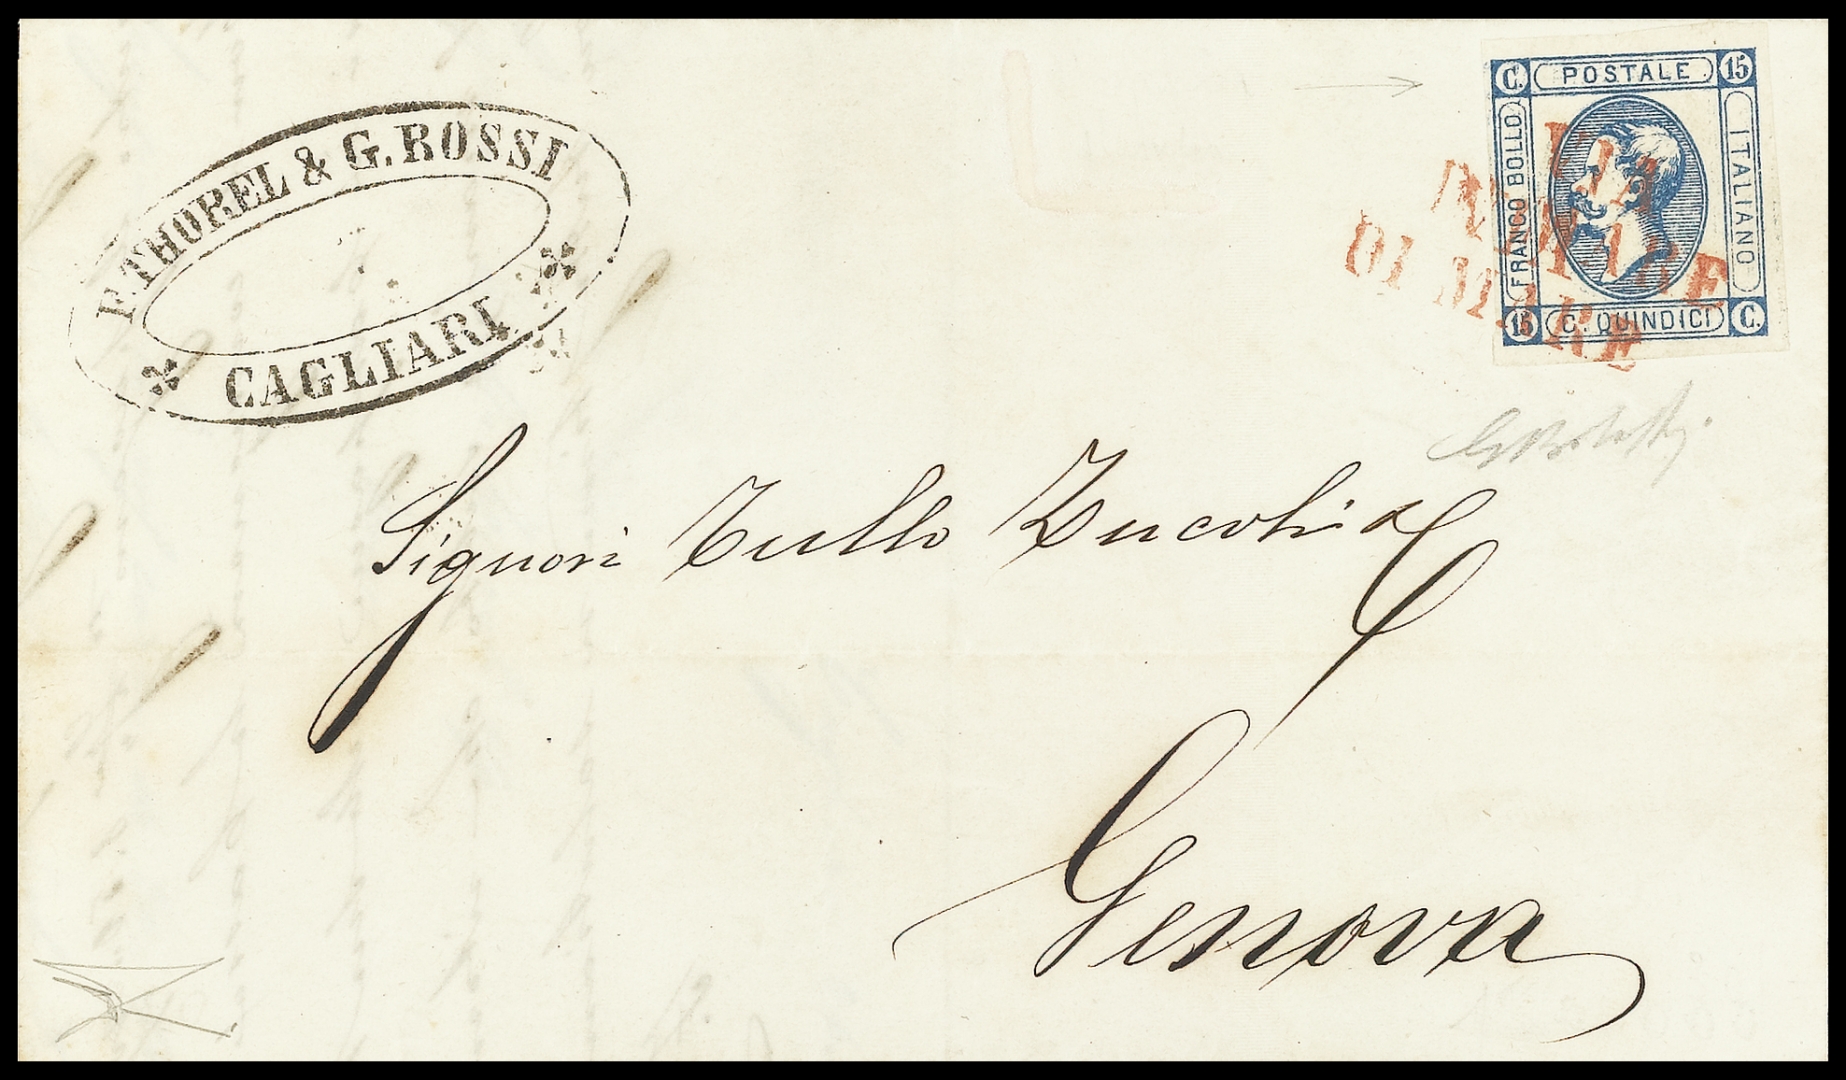 F. THOREL & G. ROSSI
CAGLIARI
C. POSTALE 15
FRANCO BOLLO
ITALIANO
15 C. QUINDICI C.
VIA
DI MARE
Signori Tullo
Genova